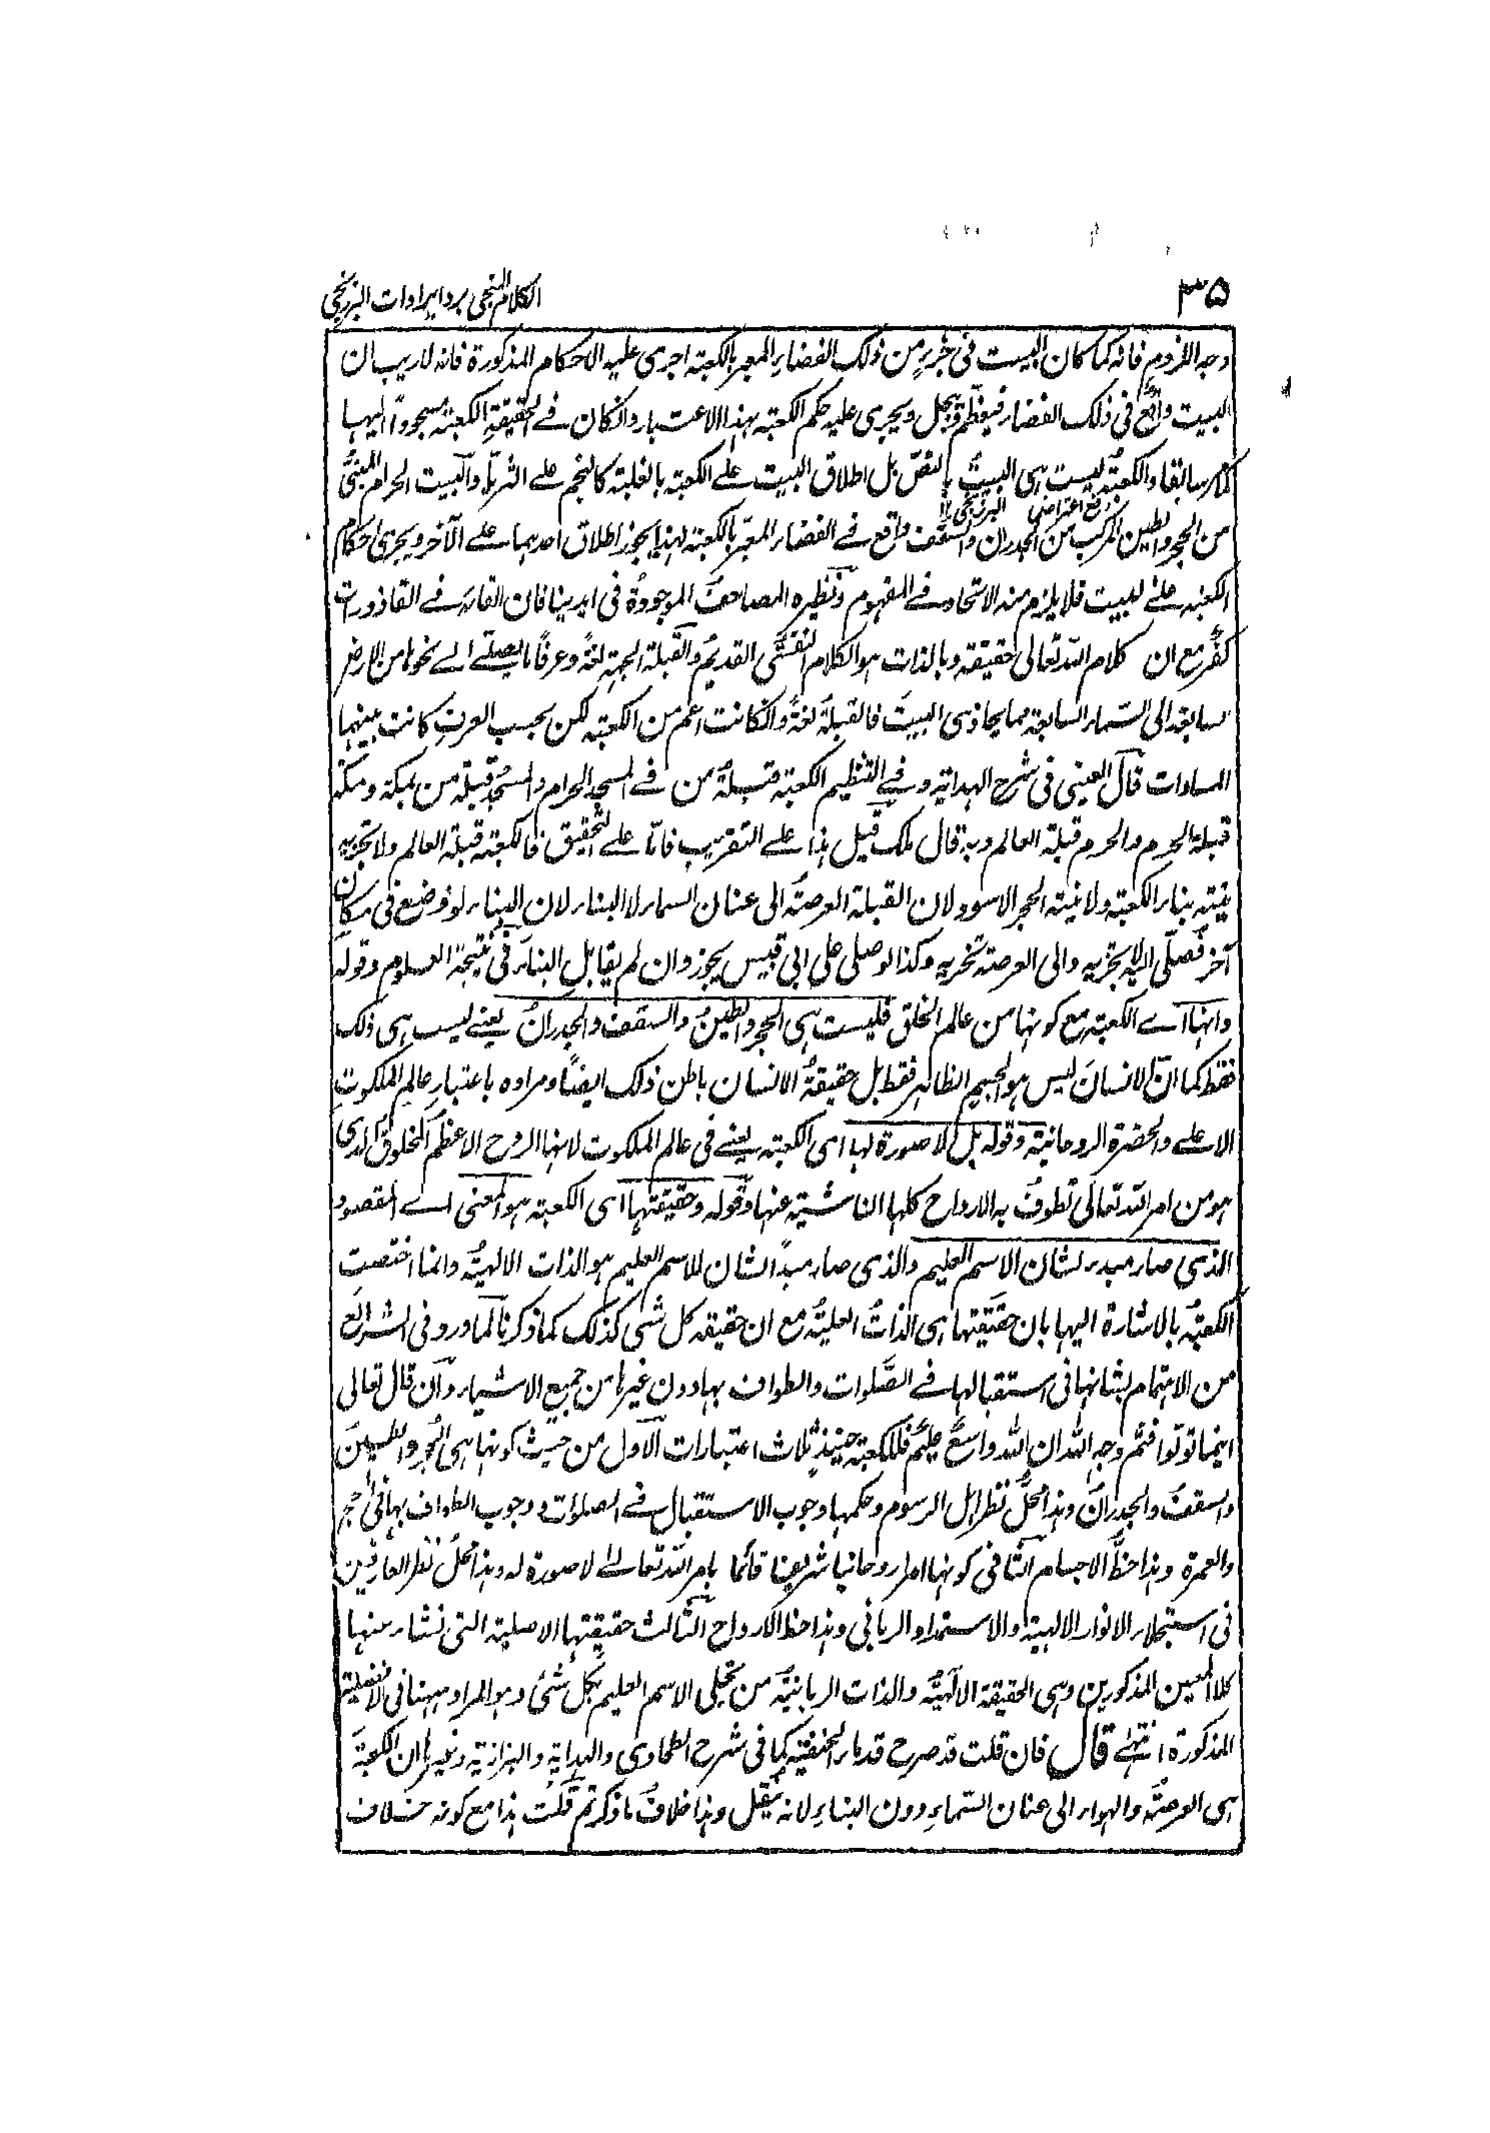 ٣٥
الكلام المنجى برد ايرادات البرزنجى
وجه اللزوم فانه كما كان البيت فى جزءٍ من ذلك الفضاءِ المعبر بالكعبة اجرى عليه الاحكام المذكورة فانه لاريب ان
البيت واقعٌ فى ذلك الفضاء فيعظّم ويبجل ويجرى عليه حكم الكعبة بهذا الاعتبار وانكان فے الحقيقةِ الكعبة مسجودًا اليها
كما مر سابقا والكعبةُ ليست هى البيتُ بالنصّ بل اطلاق البيت علے الكعبة بالغلبة كالنجم علے الثريّا والبيت الحرام المبنىُّ
دفع اعتراض البرزنجى
من الحجر والطين المركب من الجدران والسقف واقع فے الفضاء المعبّر بالكعبة لهذا يجوز اطلاق احدهما علے الآخر ويجرى احكام
الكعبة علے البيت فلا يلزم منه الاتحاد فے المفهوم ونظيره المصاحفُ الموجودةُ فى ايدينا فان القاءَه فے القاذورات
كفرٌ مع ان كلام الله تعالى حقيقة وبالذات هو الكلام النفسىُّ القديمُ والقبلة الجهةِ لغةً وعرفًا ما يصلّے الے نحوها من الارض
السابعة الى السّماء السابعة مما يحاذى البيتَ فالقبلةُ لغةً وانكانت اعم من الكعبة لكن بحسب العرفِ كانت بينهما
المساوات قال العينى فى شرح الهداية وفے التنظيم الكعبة قبلةُ من فے المسجد الحرام والمسجدُ قبلة من بمكة ومكة
قبلة الحرم والحرم قبلة العالم وبه قال ملك قيل هذا علے التقريب فامّا علے التحقيق فالكعبة قبلة العالم ولا تجزيه
نيته بناء الكعبة ولا نية الحجر الاسود لان القبلة العرصةُ الى عنان السماء لا البناء لان البناء لو وضع فى مكان
آخر فصلّى اليه لا تجزيه والى العرصة تجزيه وكذا لو صلى على ابى قبيس يجوز وان لم يقابل البناءَ فى نتيجة العلوم وقوله
وانها اے الكعبة مع كونها من عالم الخلق فليست هى الحجر والطينُ والسقفُ والجدرانُ يعنے ليست هى ذلك
فقط كما انّ الانسانَ ليس هو الجسيم الظاهر فقط بل حقيقةُ الانسان باطن ذلك ايضًا ومراده باعتبارِ عالم الملكوت
الاعلے والحضرة الروحانية وقوله بل لا صورة لها اى الكعبة يعنے فى عالم الملكوت لانها الروح الاعظم المخلوقُ الذى
هو من امر الله تعالى تطوفُ به الارواح كلها الناشئة عنها وقوله وحقيقتها اى الكعبة هو المعنى اے المقصود
الذى صار مبدء لشان الاسم العليم والذى صار مبدأ لشان للاسم العليم هو الذات الالهيّة وانما اختصت
الكعبةُ بالاشارة اليها بان حقيقتها هى الذاتُ العليةُ مع ان حقيقة كل شئ كذلك كما ذكرنا لما ورد فى الشرائع
من الاهتمام بشانها فى استقبالها فے الصَّلوات والطواف بها دون غيرها من جميع الاشياء وان قال تعالى
اينما تولوا فثم وجه الله ان الله واسعٌ عليمٌ فللكعبة حينئذٍ ثلاث اعتبارات الاول من حيث كونها هى الحجر والطينَ
والسقفَ والجدرانَ وهذا محلُّ نظر اهل الرسوم وحكمها وجوب الاستقبال فے الصلوات ووجوب الطواف بها فى الحج
والعمرة وهذا حظُّ الاجسام الثانى كونها امرا روحانيا شريفا قائما بامر الله تعالے لا صورة له وهذا محلُّ نظر العارفين
فى استجلاء الانوار الالهية والاستمداد الربانى وهذا حظ الارواح الثالث حقيقتها الاصلية التى نشاء منها
كلا المعنيين المذكورين وهى الحقيقة الالٰهيّة والذات الربانيّة من تجلى الاسم العليم بكل شئ وهو المراد ههنا فى الافضلية
المذكورة انتهٰے قال فان قلت قد صرح قدماء الحنفيّة كما فى شرح الطحاوى والهداية والبزازية وغيرها ان الكعبةَ
هى العرصةُ والهواء الى عنان السّماءِ دون البناءِ لانه ينقل وهذا خلافُ ما ذكرتم قلتُ هذا مع كونه خلاف